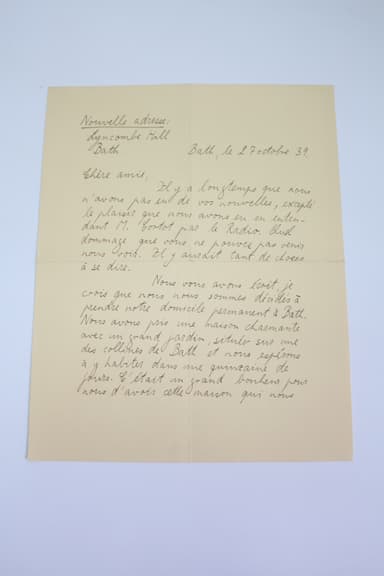 Nouvelle adresse:
Lyncombe Hall
Bath
Bath, le 27 octobre 39.
Chère amie,
Il y a longtemps que nous
n'avons pas eu de vos nouvelles, excepté
le plaisir que nous avons eu en enten-
dant M. Cortot par le Radio. Quel
dommage que vous ne pouvez pas venir
nous voir. Il y aurait tant de choses
à se dire.
Nous vous avons écrit, je
crois que nous nous sommes décidés à
prendre notre domicile permanent à Bath.
Nous avons pris une maison charmante
avec un grand jardin, située sur une
des collines de Bath et nous espérons
à y habiter dans une quinzaine de
jours. C'était un grand bonheur pour
nous d'avoir cette maison qui nous